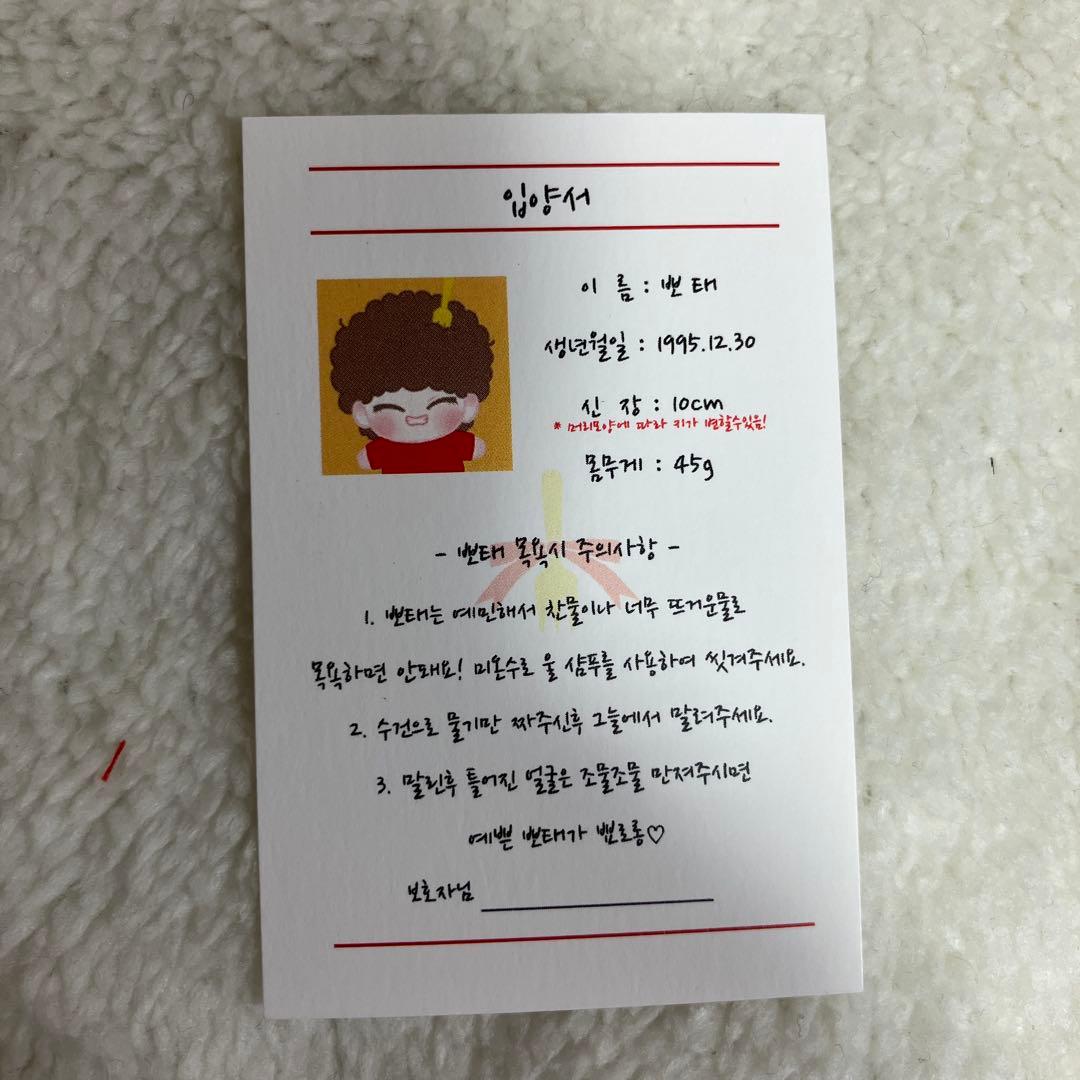 입양서
이 름 : 뽀태
생년월일 : 1995.12.30
신 장 : 10cm
* 머리모양에 따라 키가 변할수있음!
몸무게 : 45g
- 뽀태 목욕시 주의사항 -
1. 뽀태는 예민해서 찬물이나 너무 뜨거운물로
목욕하면 안돼요! 미온수로 울 샴푸를 사용하여 씻겨주세요.
2. 수건으로 물기만 짜주신후 그늘에서 말려주세요.
3. 말린후 틀어진 얼굴은 조물조물 만져주시면
예쁜 뽀태가 뾰로롱♡
보호자님